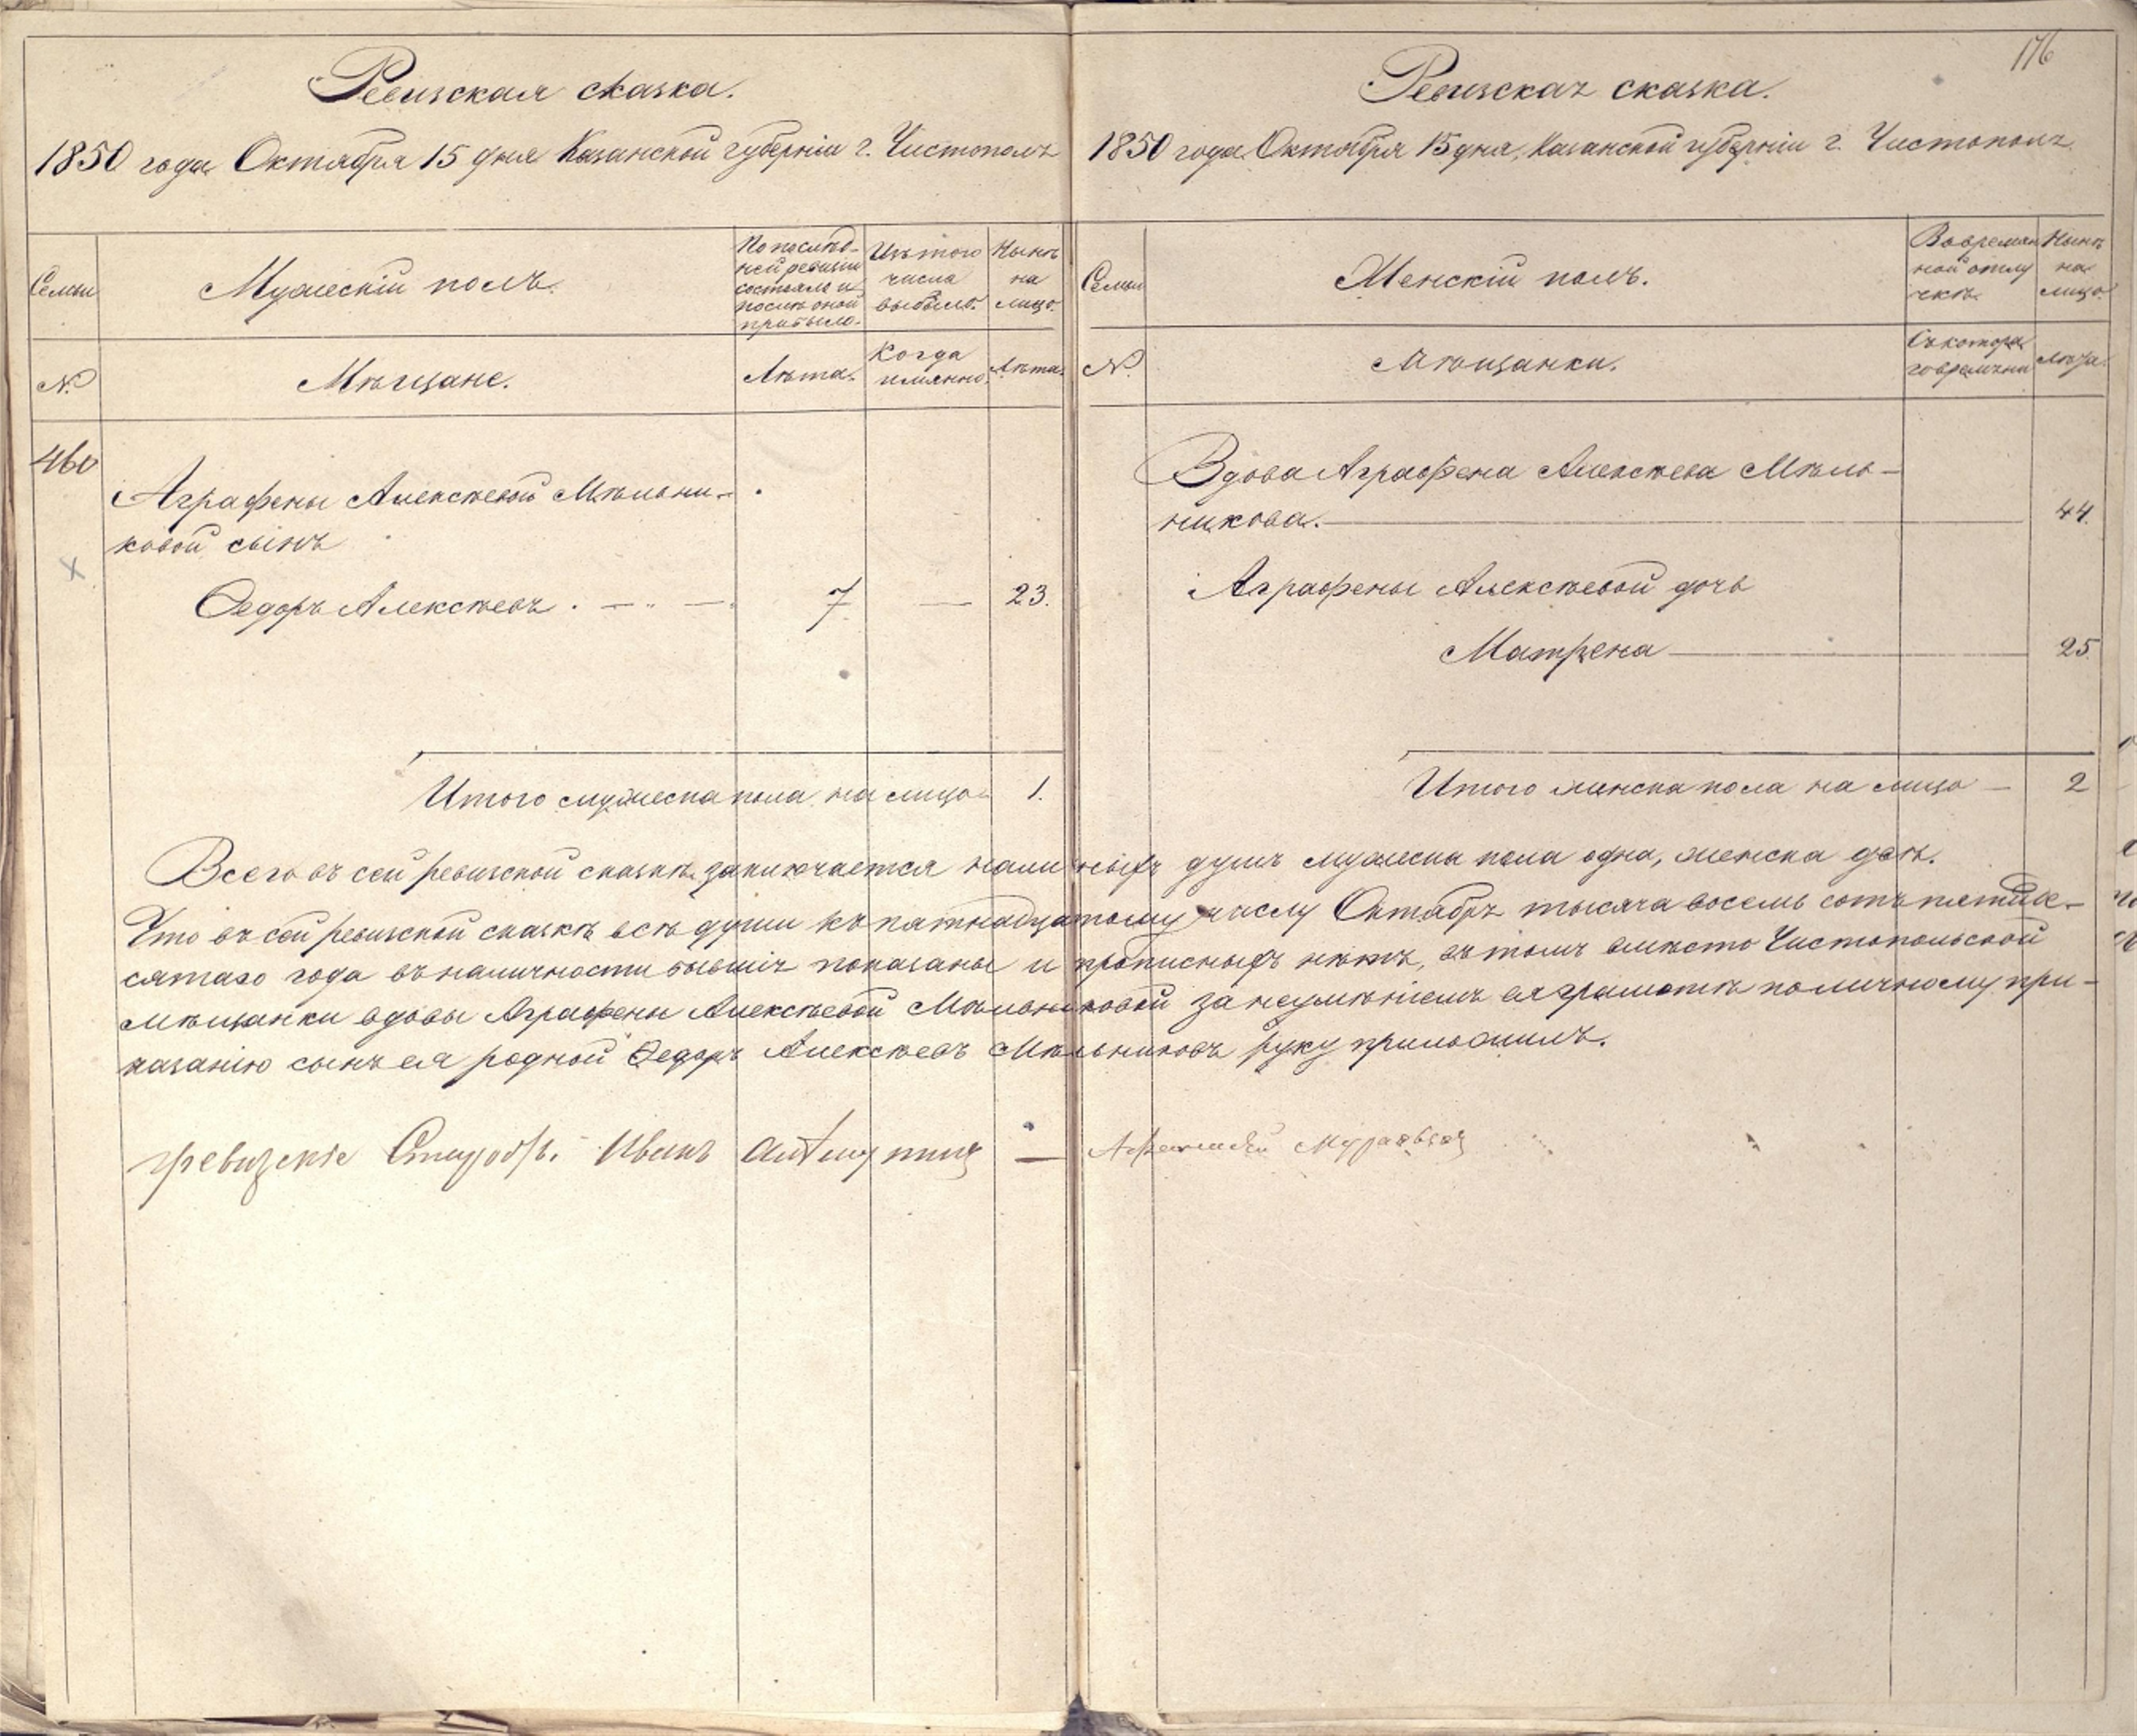 176
Ревизская сказка.
1850 года Октября 15 дня Казанской губерніи г. Чистополь
Семьи
Мужескій полъ.
По послѣд-
ней ревизіи
состояло и
послѣ оной
прибыло.
Изъ того
числа
выбыло.
Нынѣ
на
лицо.
№
Мѣщане.
Лѣта.
Когда
имянно.
Лѣта.
460
Аграфены Алексѣевой Мѣльни-
ковой сынъ
Ѳедоръ Алексѣевъ. 7 — 23.
Итого мужеска пола на лицо 1.
Ревизская сказка.
1850 года Октября 15 дня, Казанской губерніи г. Чистополь
Семьи
Женскій полъ.
Во времян
ной отлу
чкѣ.
Нынѣ
на
лицо.
№
Мѣщанки.
Съ котора
го времяни
лѣта.
Вдова Аграфена Алексѣева Мѣль-
никова. — 44.
Аграфены Алексѣевой дочь
Матрена — 25.
Итого женска пола на лицо — 2
Всего въ сей ревизской сказкѣ заключается наличныхъ душъ мужеска пола одна, женска двѣ.
Что въ сей ревизской сказкѣ всѣ души къ пятнадцатому числу Октября тысяча восемь сотъ пятиде-
сятаго года въ наличности бывшіе показаны и прописныхъ нѣтъ, въ томъ вмѣсто Чистопольской
мѣщанки вдовы Аграфены Алексѣевой Мѣльниковой за неумѣніемъ ея грамотѣ по личному при-
казанію сынъ ея родной Ѳедоръ Алексѣевъ Мѣльниковъ руку приложилъ.
Иванъ